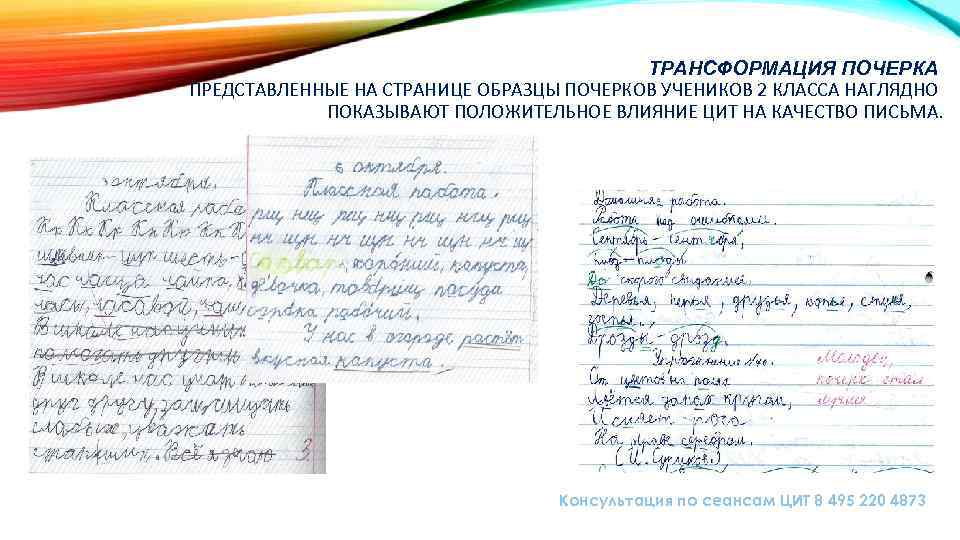 ТРАНСФОРМАЦИЯ ПОЧЕРКА
ПРЕДСТАВЛЕННЫЕ НА СТРАНИЦЕ ОБРАЗЦЫ ПОЧЕРКОВ УЧЕНИКОВ 2 КЛАССА НАГЛЯДНО
ПОКАЗЫВАЮТ ПОЛОЖИТЕЛЬНОЕ ВЛИЯНИЕ ЦИТ НА КАЧЕСТВО ПИСЬМА.
октября.
Классная рабо
Кк Кк Кк Кк Кк Кк К
час чаща
часы,
В школе нас учили
помогать другим
В школе нас учат
друг другу, защищать
слабых, уважать
старших. Всё я знаю
3
6 октября.
Классная работа.
рщ нщ рщ нщ рщ нщ рщ
нч щн нч щн нч щн нч щн
, хороший, капуста,
девочка, товарищ посуда
рабочий.
У нас в огороде растёт
вкусная капуста.
Домашняя работа.
Работа над ошибками.
Сентябрь - сент
плод - плоды
До скорого свиданией.
Деревья, перья, друзья, копья,
Дрозды - дрозд.
Упражнение
От цветов на полях
льётся запах кругом,
И сияет роса
На траве серебром.
(И. Суриков.)
Молодец,
почерк стал
лучше
Консультация по сеансам ЦИТ 8 495 220 4873